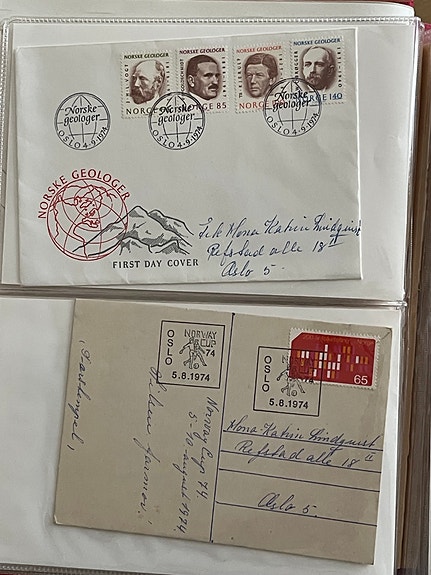 NORSKE GEOLOGER
NORSKE GEOLOGER
NORSKE GEOLOGER
NORSKE GEOLOGER
NORGE
NORGE 85
NORGE
NORGE 140
Norske
geologer
OSLO 4-9-1974
Norske
geologer
OSLO 4-9-1974
Norske
geologer
OSLO 4-9-1974
NORSKE GEOLOGER
FIRST DAY COVER
Frk Mona Katrin Lindquist
Refstad alle 18 II
Oslo 5.
OSLO
NORWAY
CUP
74
5.8.1974
OSLO
NORWAY
74
5.8.1974
65
Norway Cup 74
5-10 august 1974
Mona Katrin Lindquist
Refstad alle 18 II
Oslo 5.